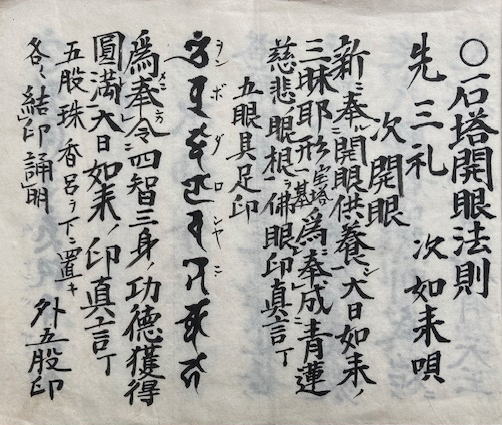 〇石塔開眼法則
先三礼　次如来唄
次開眼
新ニ奉ニ開眼供養一シ大日如来ノ
三昧耶形宝塔一基ヲ為ニ奉成ニ青蓮
慈悲眼根ヲ佛眼印真言丁
五眼具足印
ランボダロシヤニ
為メニ奉ラ令ニ四智三身ノ功徳獲得
圓満大日如来ノ印真言丁
五股珠香呂ヲ下ニ置キ　外五股印
各々結印誦明